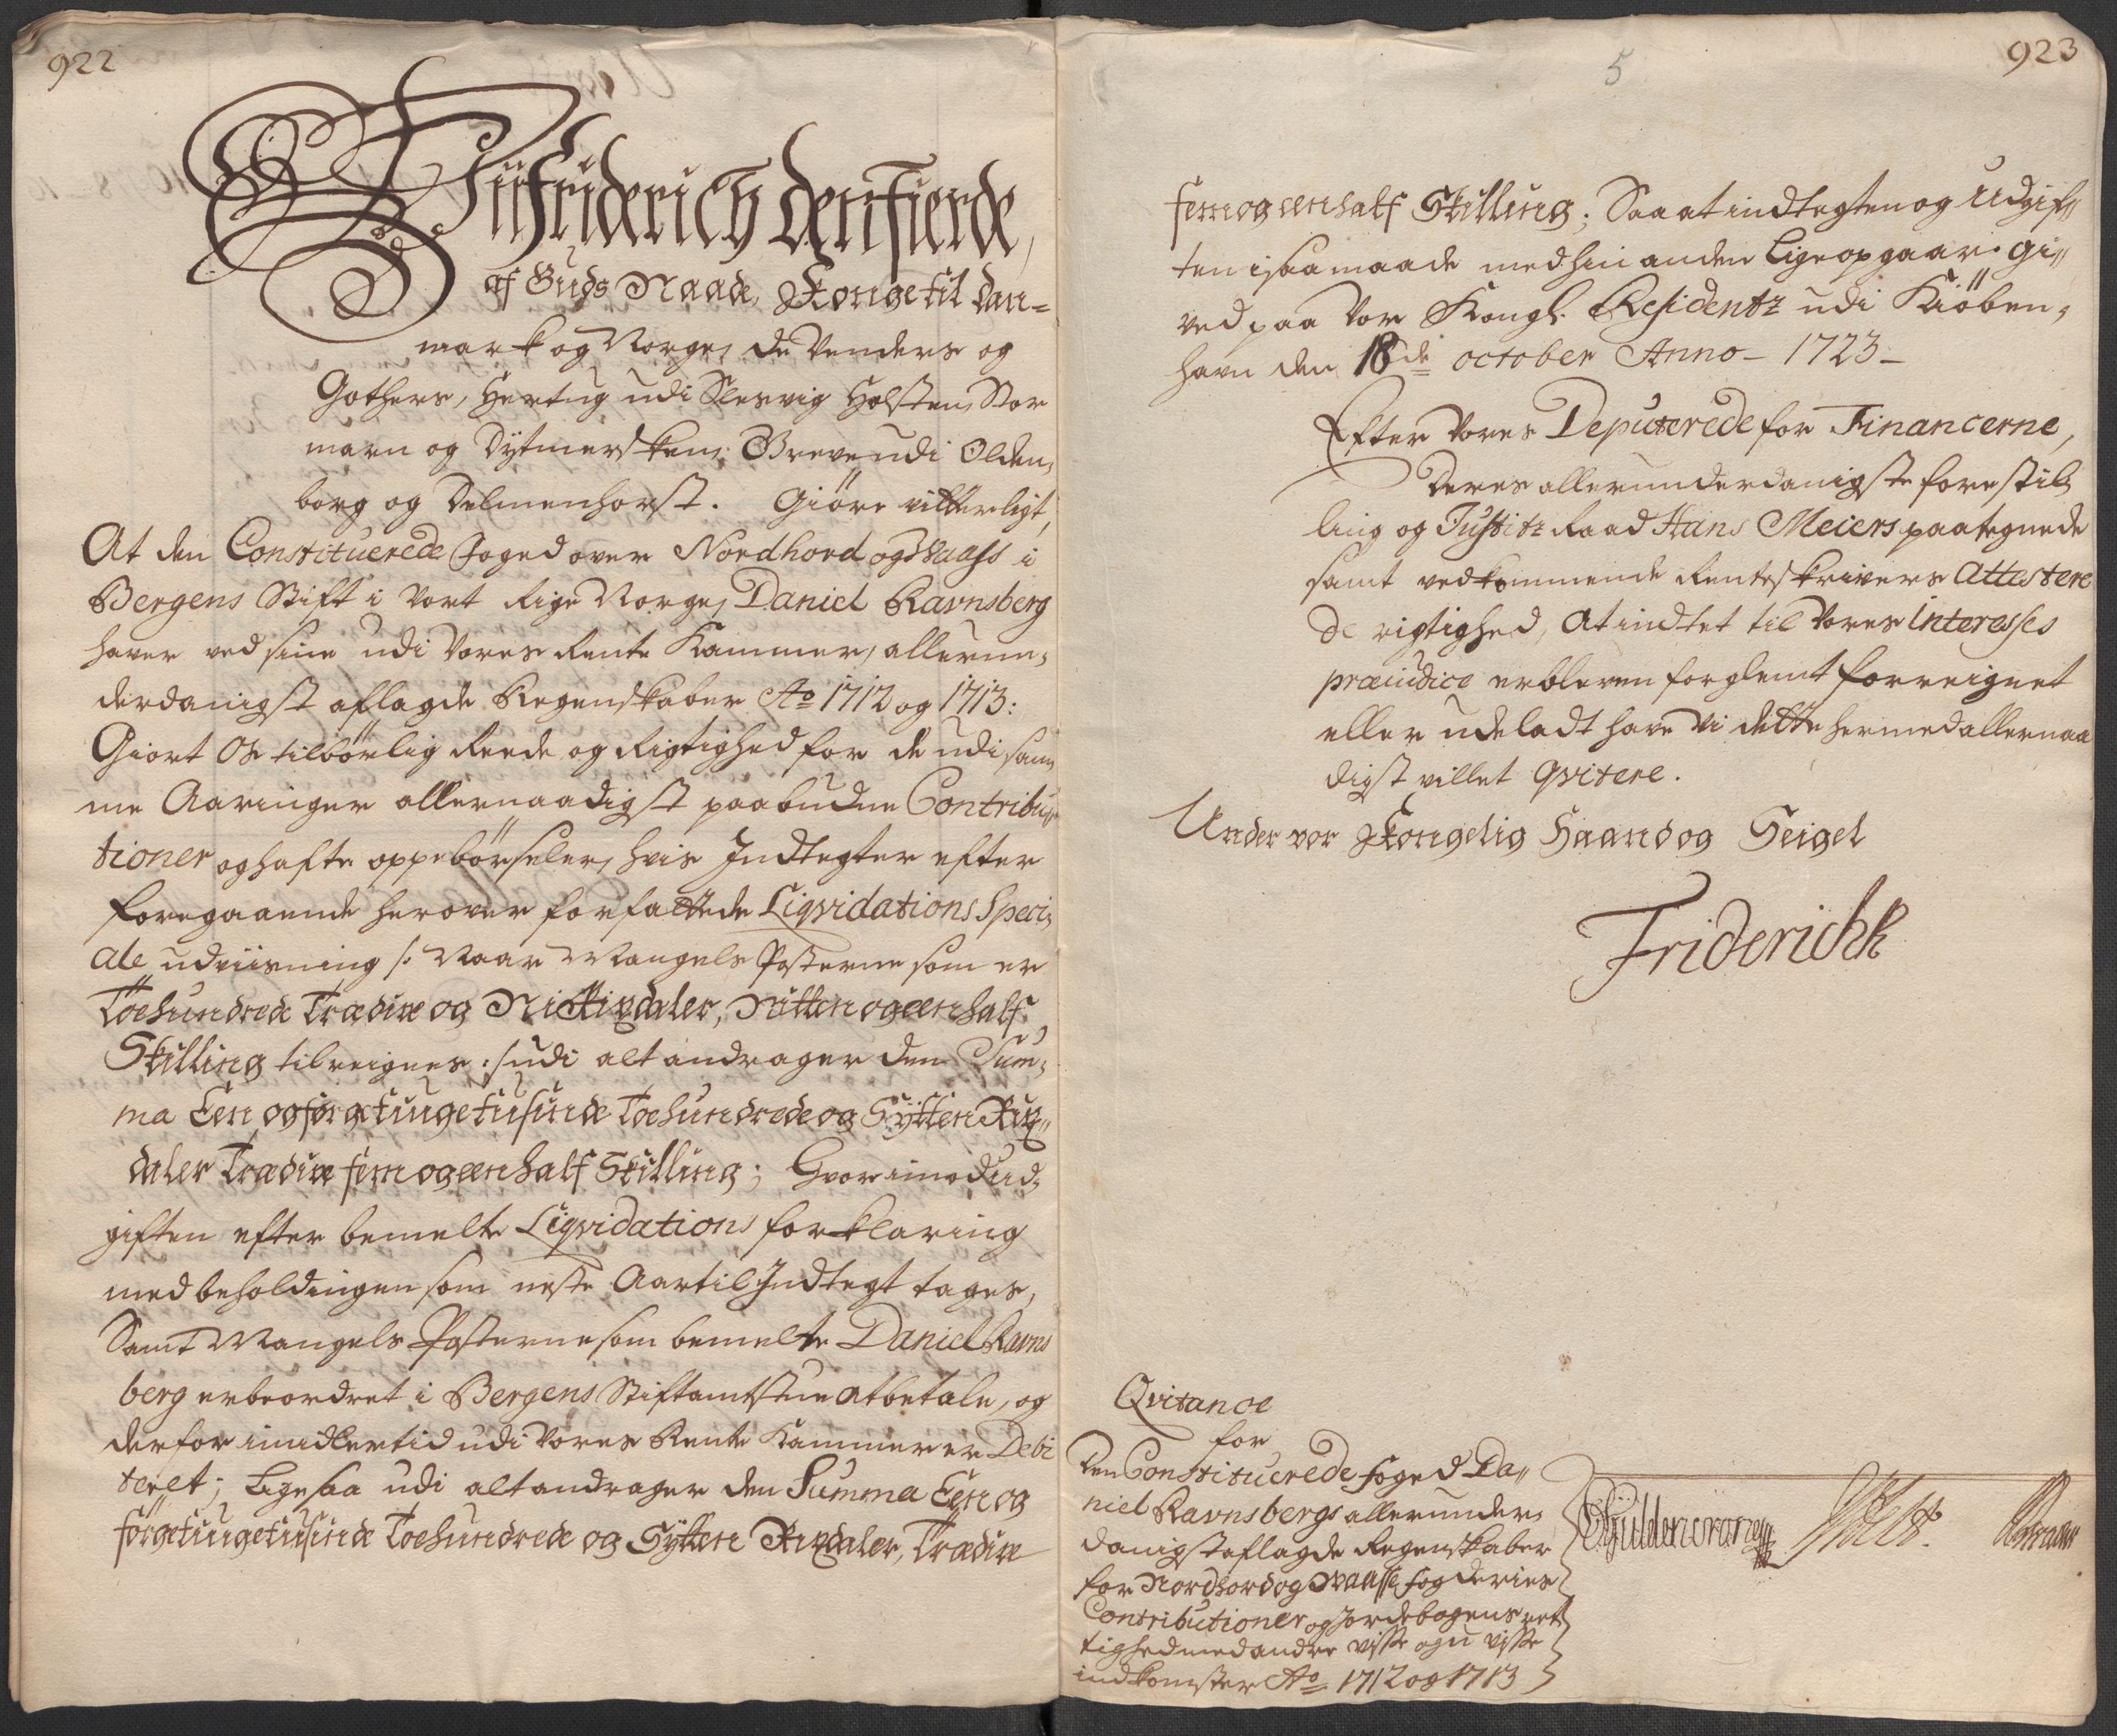 922
Wii Friderich den Fierde,
af Guds Naade, Konge til Dan=
mark og Norge, de Venders og
Gothers, Hertug udi Slesvig Holsten, Stor
marn og Dytmersken, Greve udi Olden,
borg og Delmenhorst. Giöre vitterligt,
At den Constituerede Foged over Nordhord og Waass i
Bergens Stift i Vort Rige Norge, Daniel Ravnsberg
haver ved sine udi Vores Rente Kammer, allerun,
derdanigst aflagde Regenskaber Ao 1712 og 1713:
Giort Os tilbörlig Reede og Rigtighed for de udi sam,
me Aaringer allernaadigst paabudne Contribu,,
tioner og hafte oppebörseler, hvis Indtegter efter
foregaaende herover forfattede Liqvidations Speci,
ale udviisning /: Naar Mangels Posterne som er
Toehundrede Tredive og Ni Rixdaler, Nitten og een half
Skilling tilreignes :/ udi alt andrager den Sum,
ma Een og förgetiuge tusinde Toehundrede og Sytten Rix,,
daler Tredive fem og een half Skilling; Hvorimod Ud,
giften efter bemelte Liqvidations forklaring
med beholdingen som neste Aar til Indtegt tages,
Samt Mangels Posterne som bemelte Daniel Ravns
berg er beordret i Bergens Stiftamtstue at betale, og
derfor imidlertid udi Vores Rente Kammer er Debi
teret; Ligesaa udi alt andrager den Summa Een og
förgetiuge tusinde Toehundrede og Sytten Rixdaler, Tredive
5
923
fem og een half Skilling; Saa at indtegten og Udgif,,
ten i saa maade med hin anden Lige opgaar. Gi,,
ved paa Vor Kongl. Residentz udi Kiöben,
havn den 18de october Anno - 1723 -
Efter Vores Deputerede for Financerne,
Deres allerunderdanigste forestil,
ling og Justitz Raad Hans Meiers paategnede
samt vedkommende Renteskrivers Attestere
de rigtighed, At indtet til Vores Interesses
præiudice er bleven forglemt forreignet
eller udeladt have Vi dette hermed allernaa
digst villet qvitere.
Under vor Kongelig Haand og Seigel
Friderich R
Qvitance
for
den Constituerede foged Da,,
niel Ravnsbergs allerunder,
danigst aflagde Regenskaber
for Nordhord og Waasse fogderies
Contributioner og Jordebogens ret
tighed med andre visse og u visse
indkomster Ao 1712 og 1713